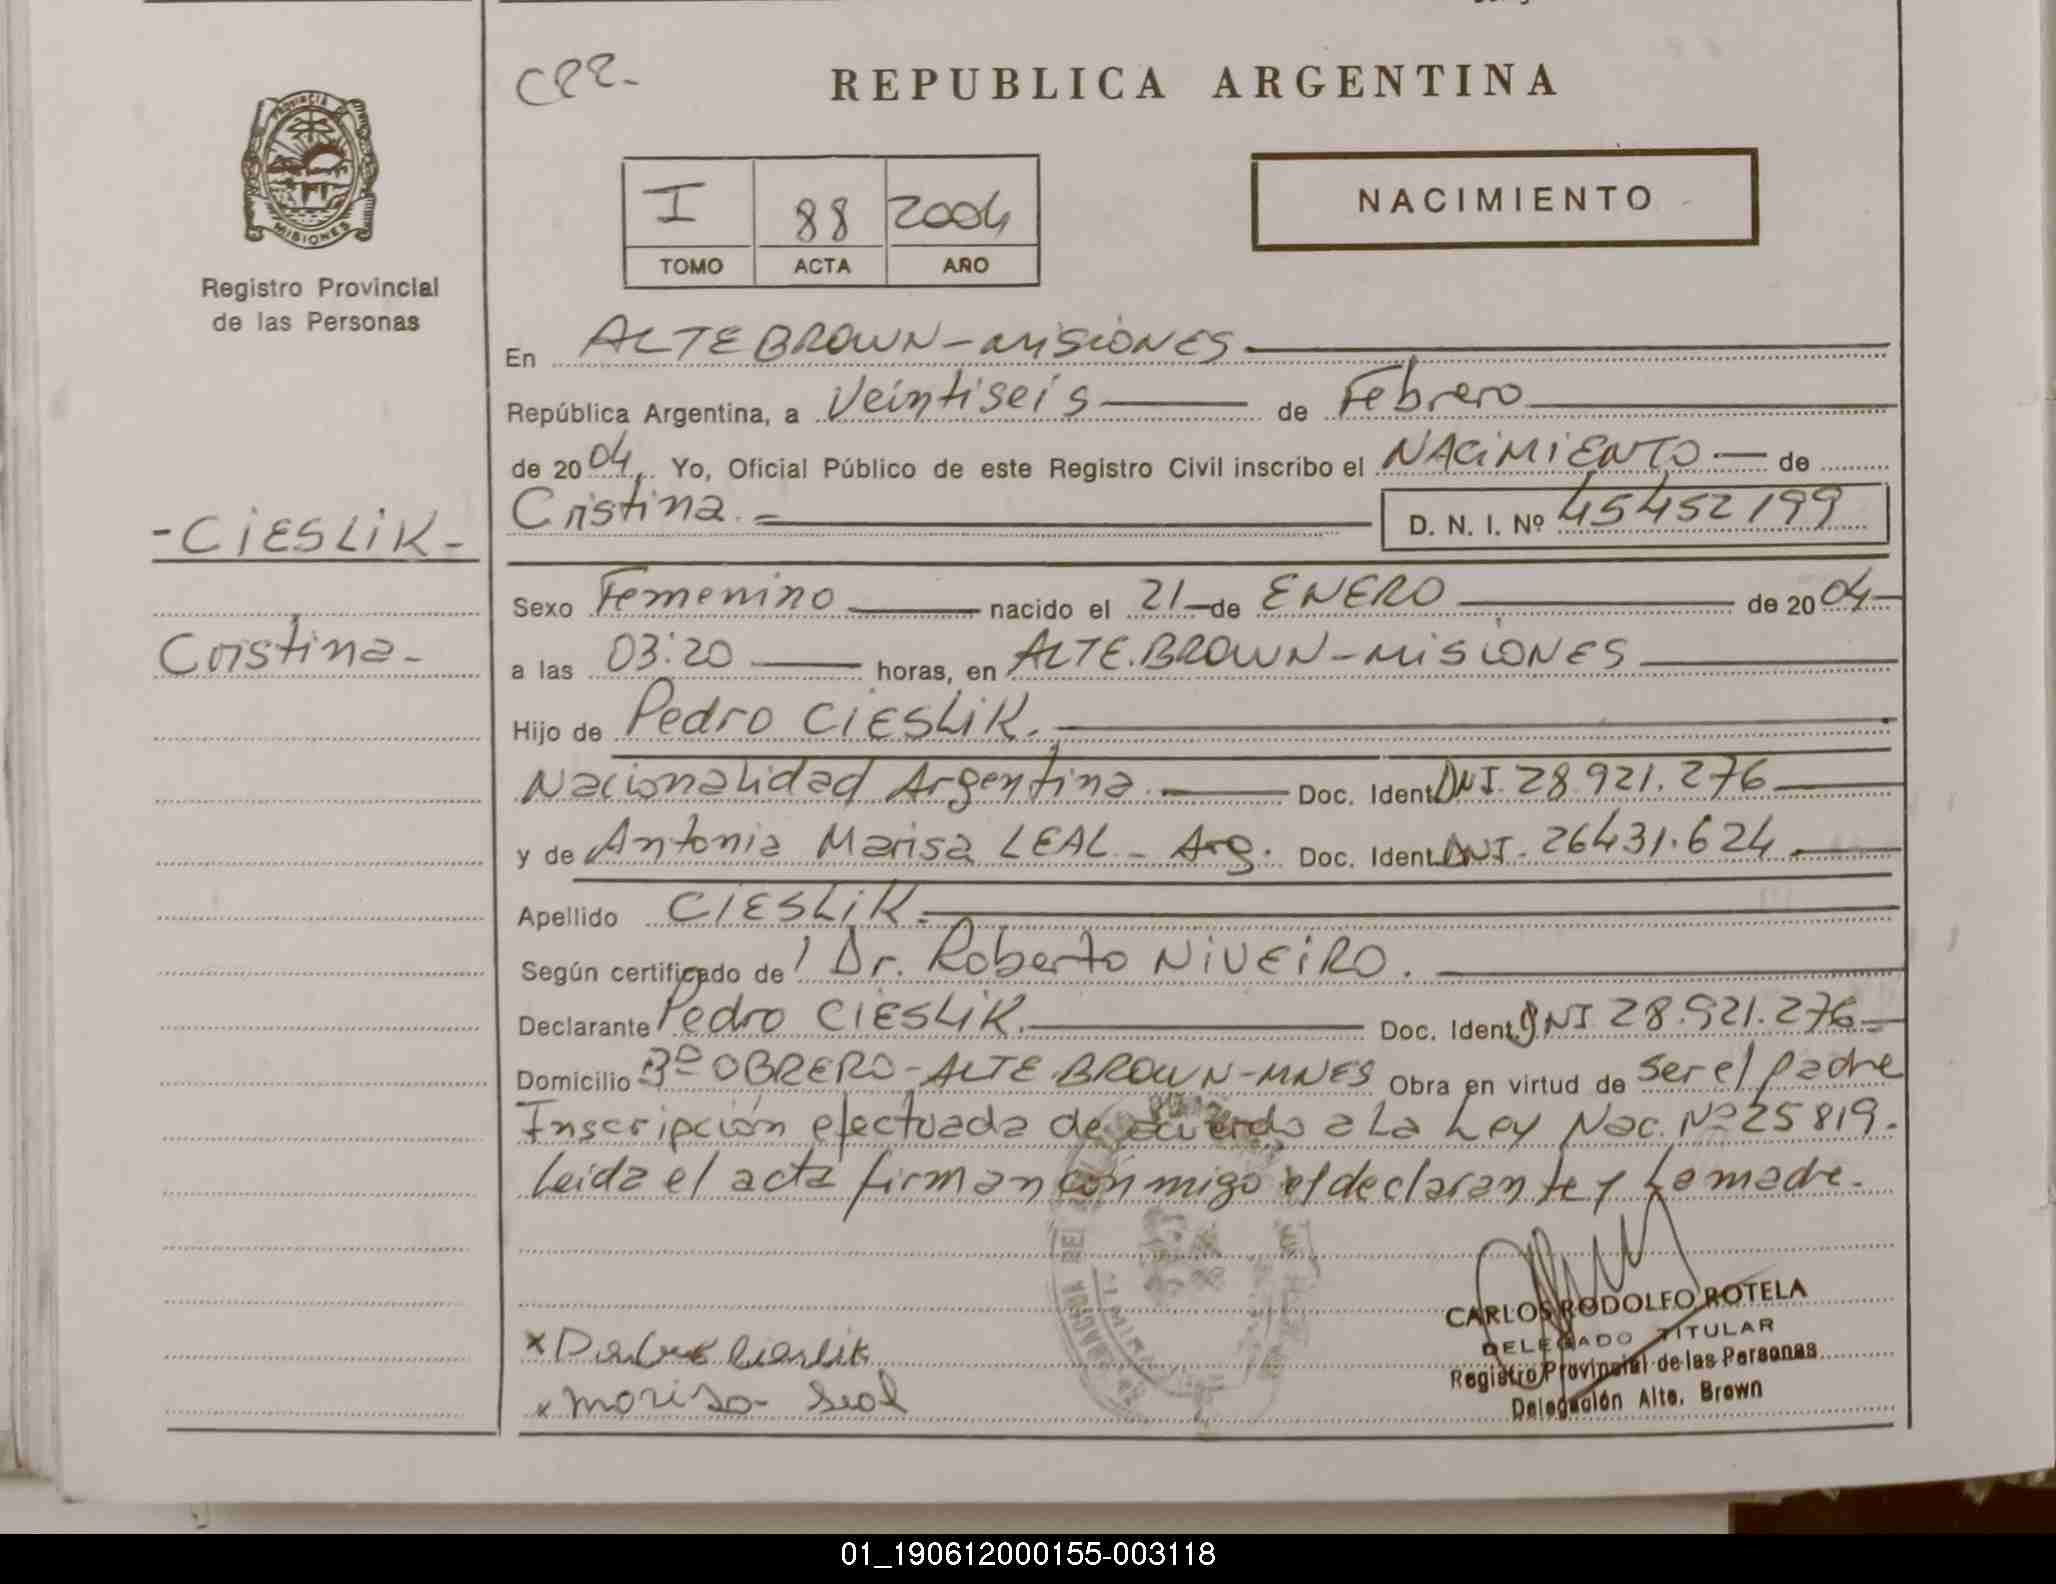 CRR-
REPUBLICA ARGENTINA
PROVINCIA DE
MISIONES
I 88 2004
TOMO ACTA AÑO
NACIMIENTO
Registro Provincial
de las Personas
En ALTE BROWN-MISIONES
República Argentina, a Veintiseis de Febrero
de 2004. Yo, Oficial Público de este Registro Civil inscribo el NACIMIENTO de
Cristina.= D. N. I. Nº 45452199
-CIESLIK-
Cristina-
Sexo Femenino nacido el 21 de ENERO de 2004
a las 03:20 horas, en ALTE.BROWN-MISIONES
Hijo de Pedro CIESLIK.
Nacionalidad Argentina. Doc. Ident. DNI. 28.921.276
y de Antonia Marisa LEAL - Arg. Doc. Ident. DNI. 26431.624
Apellido CIESLIK.
Según certificado de Dr. Roberto NIVEIRO.
Declarante Pedro CIESLIK. Doc. Ident. DNI 28.921.276
Domicilio Bº OBRERO-ALTE.BROWN-MNES Obra en virtud de ser el padre
Inscripción efectuada de acuerdo a La Ley Nac. Nº 25819.
Leida el acta firman conmigo el declarante y La madre.
CARLOS RODOLFO ROTELA
DELEGADO TITULAR
Registro Provincial de las Personas
Delegación Alte. Brown
x Cieslik
x Marisa Leal
01_190612000155-003118